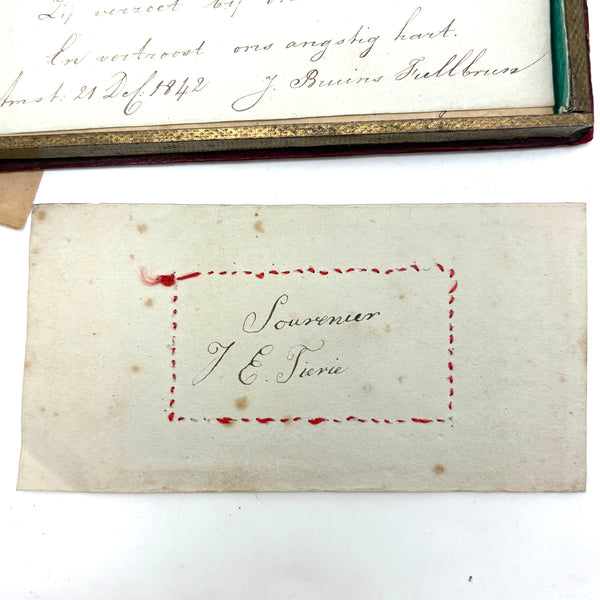 Zij verzoet bij
En vertroost ons angstig hart.
Amst: 21 Dec. 1842 J. Bruins Tullbrun
Souvenier
J. E. Tierie